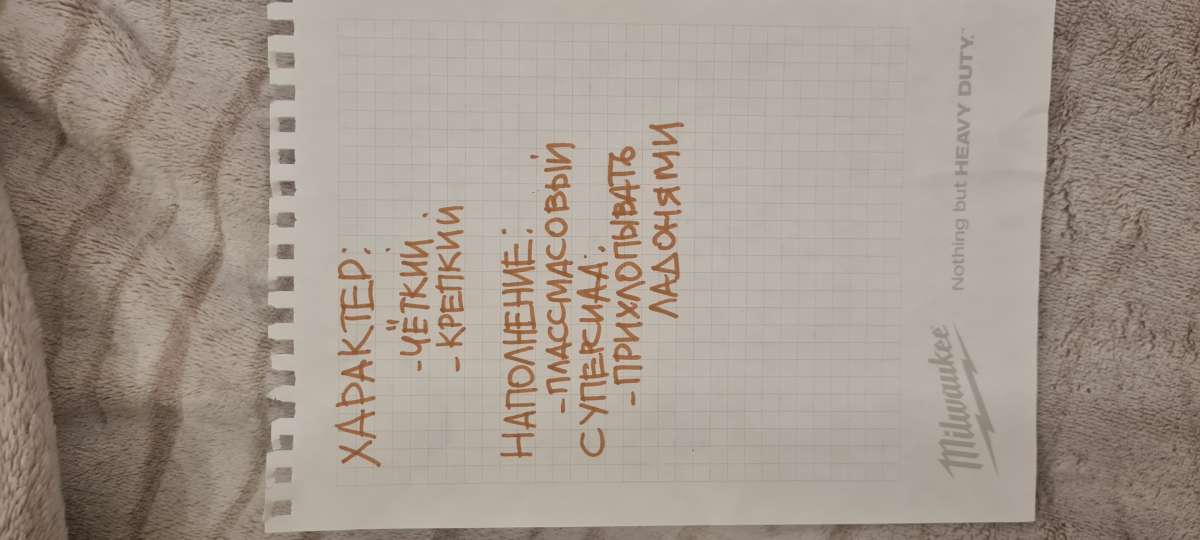 ХАРАКТЕР:
- ЧЁТКИЙ
- КРЕПКИЙ
НАПОЛНЕНИЕ:
- ПЛАССМАСОВЫЙ
СУПЕРСИЛА:
- ПРИХЛОПЫВАТЬ
ЛАДОНЯМИ
Milwaukee
Nothing but HEAVY DUTY.™